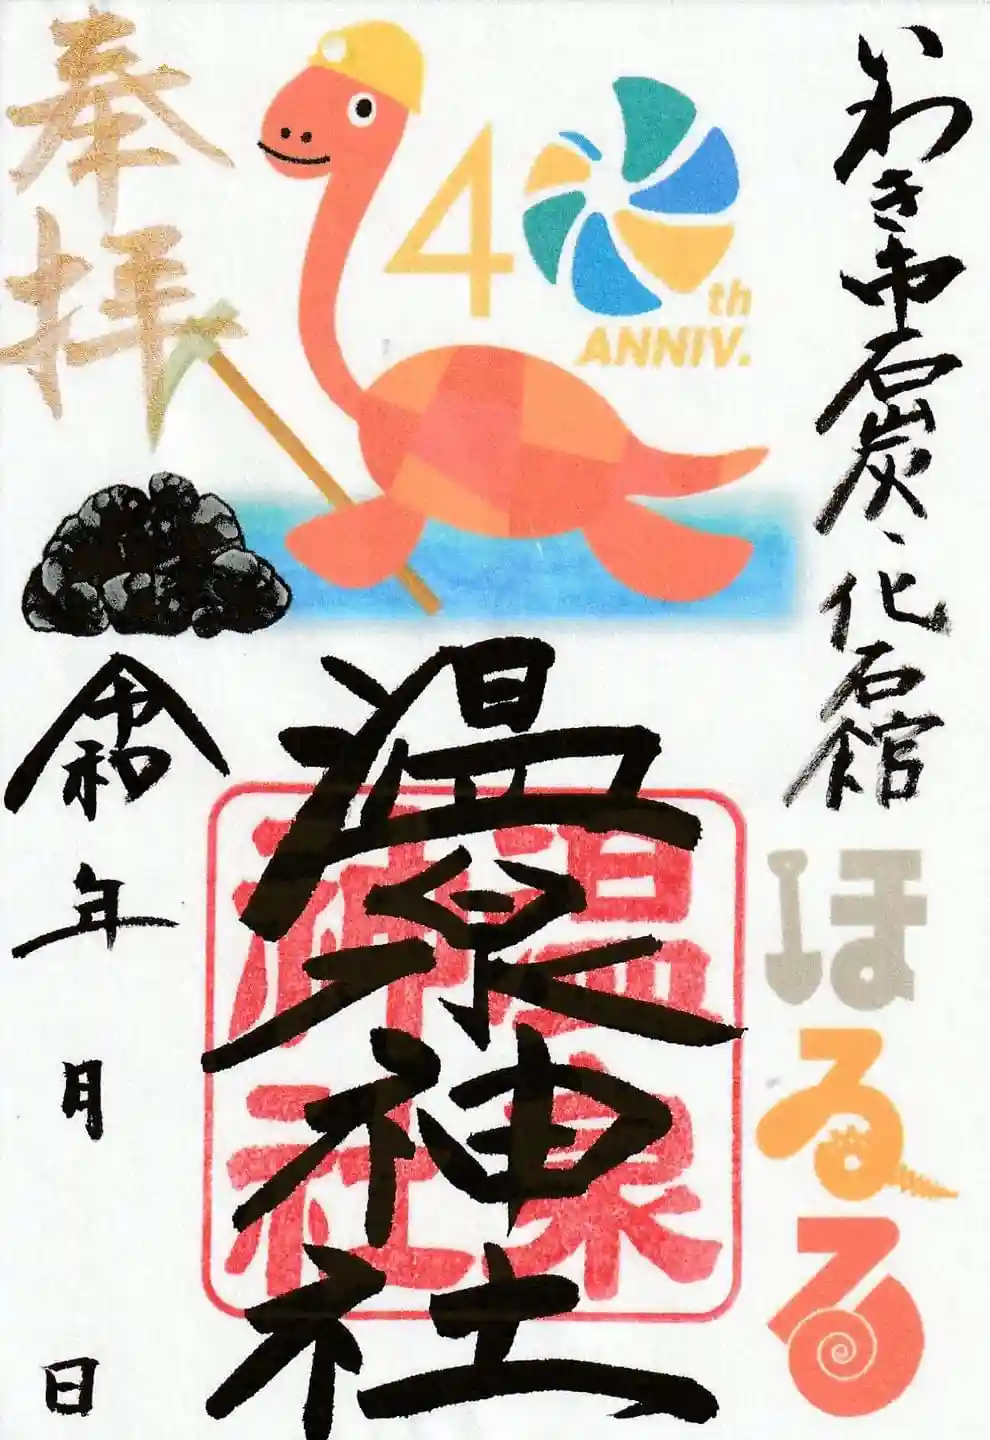 いわき市石炭・化石館
ほるる
40th
ANNIV.
奉拝
温泉神社
温泉
神社
令和 年 月 日